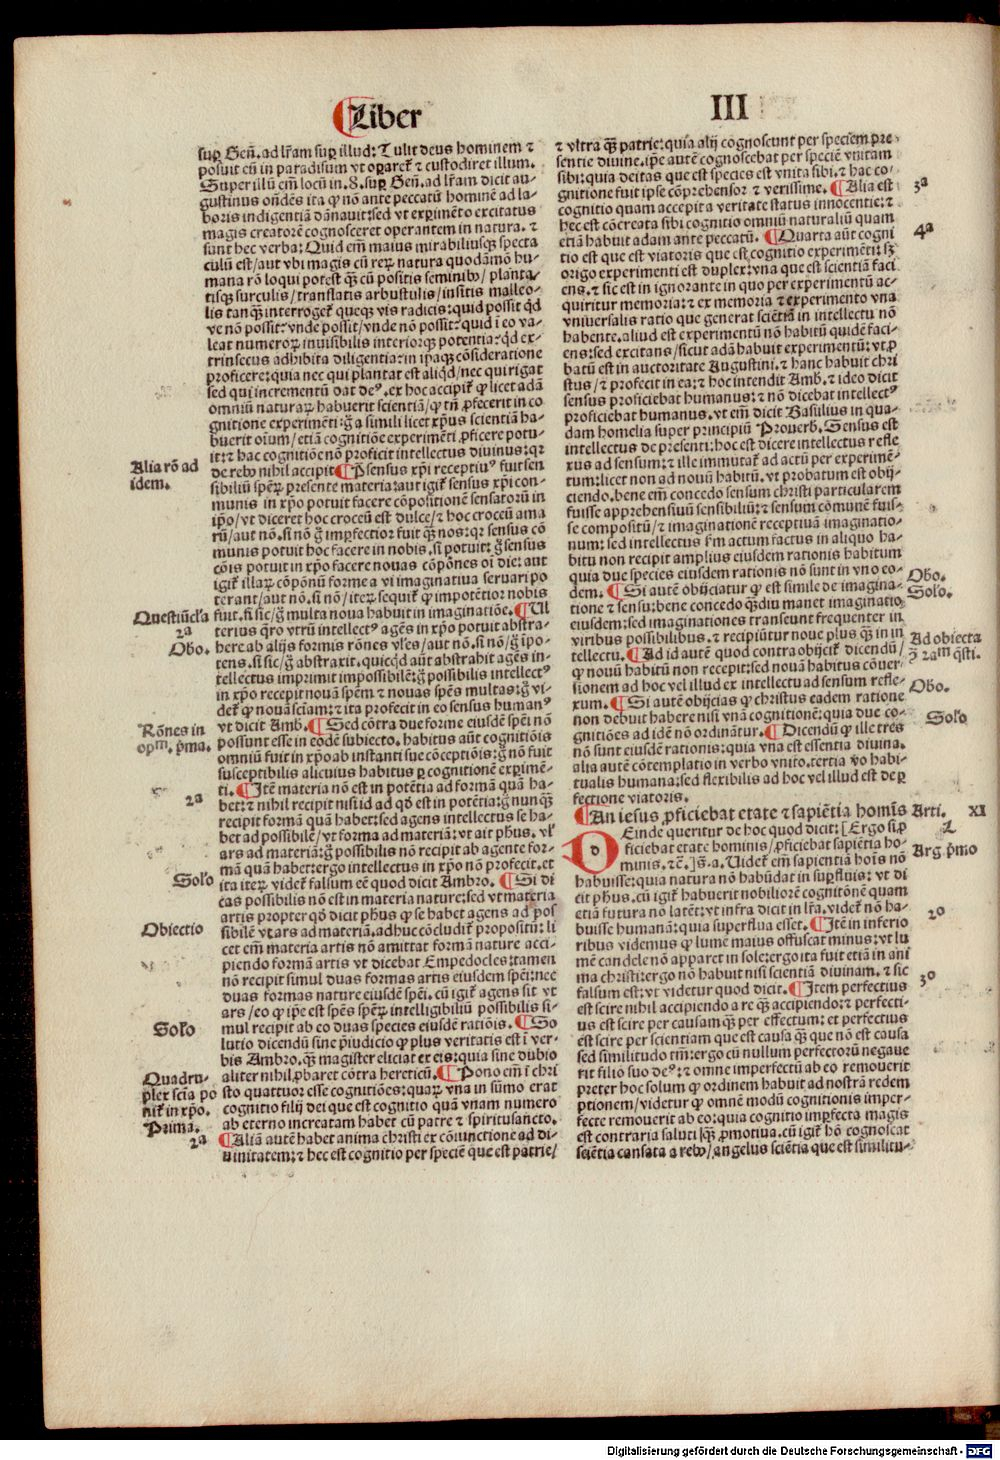 ¶Liber
III
sup̱ Geñ. ad lr̃am sup̱ illud: Tulit deus hominem ⁊
posuit eũ in paradisum vt op̱aret᷑ ⁊ custodiret illum.
Super illũ em̃ locũ in .8. sup̱ Geñ. ad lr̃am dicit au-
gustinus oñdẽs ita ꝙ nõ ante peccatũ hominẽ ad la-
boris indigentiã dãnauit: sed vt exp̱imẽto excitatus
magis creatorẽ cognosceret operantem in natura. ⁊
sunt hec verba: Quid em̃ maius mirabiliusqꝫ specta
culũ est/aut vbi magis cũ reꝝ natura quodãmõ hu-
mana rõ loqui potest q̃ꝫ cũ positis seminibꝰ/ planta-
tisqꝫ surculis/ translatis arbustulis/ insitis malleo-
lis tanq̃ꝫ interroget᷑ queqꝫ vis radicis: quid possit qd̃
ve nõ possit: vnde possit/vnde nõ possit: quid ĩ eo va-
leat numeroꝝ inuisibilis interiorqꝫ potentia: qd̃ ex-
trinsecus adhibita diligentia: in ip̃aqꝫ cõsideratione
proficere: quia nec qui plantat est aliqd̃/ nec qui rigat
sed qui incrementũ dat deꝰ. ex hoc accipit᷑ ꝙ licet adã
omniũ naturaꝝ habuerit scientiã/ ꝙ tñ ꝓfecerit in co
gnitione experimẽti: g̃ a simili licet xp̃us scientiã ha-
buerit oĩum/ etiã cognitiõe experimẽti ꝓficere potu-
it: ⁊ hac cognitiõe nõ proficit intellectus diuinus: qꝛ
de rebꝰ nihil accipit ¶ P̱ sensus xp̃i receptiuꝰ fuit sen
sibiliũ spẽꝝ p̱sente materia: aut igit᷑ sensus xp̃i con-
munis in xp̃o potuit facere cõpositionẽ sensatorũ in
ip̃o/ vt diceret hoc croceũ est dulce/ ⁊ hoc croceũ ama
rũ/ aut nõ. si nõ g̃ imꝑfectior fuit q̃ꝫ nos: qꝛ sensus cõ
munis potuit hoc facere in nobis. si potuit: g̃ sensus
cõis potuit in xp̃o facere nouas cõpõnes oĩ die: aut
igit᷑ illaꝝ cõpõnũ forme a vi imaginatiua seruari po
terant/ aut nõ. si nõ/ iteꝝ sequit᷑ ꝙ impotẽtior nobis
fuit. si sic/ g̃ multa noua habuit in imaginatiõe. ¶ Ul
terius q̃ro vtrũ intellectꝰ agẽs in xp̃o potuit abstra-
here ab alijs formis rõnes vl̃es/ aut nõ. si nõ/ g̃ ĩpo-
tens. si sic/ g̃ abstraxit. quicqd̃ aũt abstrahit agẽs in-
tellectus imprimit impossibilẽ: g̃ possibilis intellectꝰ
in xp̃o recepit nouã spẽm ⁊ nouas spẽs multas: g̃ vi-
det᷑ ꝙ nouã sciam̃: ⁊ ita profecit in eo sensus humanꝰ
vt dicit Amb. ¶ Sed cõtra due forme eiusdẽ spẽi nõ
possunt esse in eodẽ subiecto. habitus aũt cognitiõis
omniũ fuit in xp̃o ab instanti sue cõceptiõis: g̃ nõ fuit
susceptibilis alicuius habitus ꝑ cognitionẽ exꝑimẽ-
ti. ¶ Itẽ materia nõ est in potẽtia ad formã quã ha-
bet: ⁊ nihil recipit nisi id ad qd̃ est in potẽtia: g̃ nunq̃ꝫ
recipit formã quã habet: sed agens intellectus se ha-
bet ad possibilẽ/ vt forma ad materiã: vt ait pħus. vl̃
ars ad materiã: g̃ possibilis nõ recipit ab agente for-
mã quã habet: ergo intellectus in xp̃o nõ profecit. et
ita iteꝝ videt᷑ falsum eẽ quod dicit Ambro. ¶ Si di
cas possibilis nõ est in materia nature: sed vt materia
artis propter qd̃ dicit pħus ꝙ se habet agens ad pos
sibilẽ vt ars ad materiã. adhuc cõcludit᷑ propositũ: li
cet em̃ materia artis nõ amittat formã nature acci-
piendo formã artis vt dicebat Empedocles: tamen
nõ recipit simul duas formas artis eiusdem spẽi: nec
duas formas nature eiusdẽ spẽi. cũ igit᷑ agens sit vt
ars/ eo ꝙ ip̃e est spẽs spẽꝝ intelligibiliũ possibilis si-
mul recipit ab eo duas species eiusdẽ rationis. ¶ So
lutio dicendũ sine p̃iudicio ꝙ plus veritatis est ĩ ver-
bis Ambro. q̃ꝫ magister eliciat ex eis: quia sine dubio
aliter nihil ꝓbaret cõtra hereticũ. ¶ Pono em̃ ĩ chri
sto quattuor esse cognitiões: quaꝝ vna in sũmo erat
cognitio filij dei que est cognitio quã vnam numero
ab eterno increatam habet cũ patre ⁊ spiritusancto.
¶ Aliã autẽ habet anima christi ex cõiunctione ad di-
uinitatem: ⁊ hec est cognitio per speciẽ que est patrie/
Alia rõ ad
idem.
Questiũcl̃a
2a
Obo.
Rõnes in
opm̃. p̃ma.
2a
Solo
Obiectio
Solo
Quadru-
plex scĩa põ
nit᷑ in xp̃o.
Prima.
2a
⁊ vltra q̃ꝫ patrie: quia alij cognoscunt per speciẽm pre
sentie diuine. ip̃e autẽ cognoscebat per speciẽ vnitam
sibi: quia deitas que est species est vnita sibi. ⁊ hac co-
gnitione fuit ipse cõprehensor ⁊ verissime. ¶ Alia est
cognitio quam accepit a veritate status innocentie: ⁊
hec est cõcreata sibi cognitio omniũ naturaliũ quam
etiã habuit adam ante peccatũ. ¶ Quarta aũt cogni
tio est que est viatoris que est cognitio experimẽti: sꝫ
origo experimenti est duplex: vna que est scientiã faci
ens. ⁊ sic est in ignorante in quo per experimentũ ac-
quiritur memoria: ⁊ ex memoria ⁊ experimento vna
vniuersalis ratio que generat sciẽtiã in intellectu nõ
habente. aliud est experimentũ nõ habitũ quidẽ faci-
ens: sed excitans/ sicut adã habuit experimentũ: vt ꝓ
batũ est in auctoritate Augustini. ⁊ hanc habuit chri
stus/ ⁊ profecit in ea: ⁊ hoc intendit Amb. ⁊ ideo dicit
sensus proficiebat humanus: ⁊ nõ dicebat intellectꝰ
proficiebat humanus. vt em̃ dicit Basilius in qua-
dam homelia super principiũ Prouerb. Sensus est
intellectus de presenti: hoc est dicere intellectus refle
xus ad sensum: ⁊ ille immutat᷑ ad actũ per experimẽ-
tum: licet non ad nouũ habitũ. vt probatum est obij-
ciendo. bene em̃ concedo sensum christi particularem
fuisse apprehensiuũ sensibiliũ: ⁊ sensum cõmunẽ fuis-
se compositũ/ ⁊ imaginationẽ receptiuã imaginatio-
num: sed intellectus s̃m actum factus in aliquo ha-
bitu non recipit amplius eiusdem rationis habitum
quia due species eiusdem rationis nõ sunt in vno eo-
dem. ¶ Si autẽ obijciatur ꝙ est simile de imagina-
tione ⁊ sensu: bene concedo q̃ꝫdiu manet imaginatio
eiusdem: sed imaginationes transeunt frequenter in
viribus possibilibus. ⁊ recipiũtur noue plus q̃ꝫ in in
tellectu. ¶ Ad id autẽ quod contra obijcit᷑ dicendũ/
ꝙ nouũ habitũ non recepit: sed nouã habitus cõuer-
sionem ad hoc vel illud ex intellectu ad sensum refle-
xum. ¶ Si autẽ obijcias ꝙ christus eadem ratione
non debuit habere nisi vnã cognitionẽ: quia due co-
gnitiões ad idẽ nõ ordinãtur. ¶ Dicendũ ꝙ ille tres
nõ sunt eiusdẽ rationis: quia vna est essentia diuina.
alia autẽ cõtemplatio in verbo vnito. tertia vo habi-
tualis humana: sed flexibilis ad hoc vel illud est de ꝑ
fectione viatoris.
¶ An iesus ꝓficiebat etate ⁊ sapiẽtia homĩs Arti. XI
Deinde queritur de hoc quod dicit: [Ergo si ꝓ
ficiebat etate hominis/ ꝓficiebat sapiẽtia ho-
minis. ⁊c̃.] §. a. Uidet᷑ em̃ sapientiã hoĩs nõ
habuisse: quia natura nõ habũdat in suꝑfluis: vt di
cit pħus. cũ igit᷑ habuerit nobiliorẽ cognitõnẽ quam
etiã futura nõ latẽt: vt infra dicit in lr̃a. videt᷑ nõ ha-
buisse humanã: quia superflua esset. ¶ Itẽ in inferio
ribus videmus ꝙ lumẽ maius offuscat minus: vt lu
mẽ candele nõ apparet in sole: ergo ita fuit etiã in ani
ma christi: ergo nõ habuit nisi scientiã diuinam. ⁊ sic
falsum est: vt videtur quod dicit. ¶ Item perfectius
est scire nihil accipiendo a re q̃ꝫ accipiendo: ⁊ perfecti-
us est scire per causam q̃ꝫ per effectum: et perfectius
est scire per scientiam que est causa q̃ꝫ que nõ est causa
sed similitudo tm̃: ergo cũ nullum perfectorũ negaue
rit filio suo deꝰ: ⁊ omne imperfectũ ab eo remouerit
preter hoc solum ꝙ ordinem habuit ad nostrã redem
ptionem/ videtur ꝙ omnẽ modũ cognitionis imper-
fecte remouerit ab eo: quia cognitio imꝑfecta magis
est contraria saluti q̃ꝫ ꝓmotiua. cũ igit᷑ hõ cognoscat
sciẽtia causata a rebꝰ/ angelus sciẽtia que est similitu-
3a
4a
Obo.
Solo.
Ad obiecta
ꝯ̃ 2am q̃sti.
Obo.
Solo
1
Arg. p̃mo
2o
3o
Digitalisierung gefördert durch die Deutsche Forschungsgemeinschaft - DFG